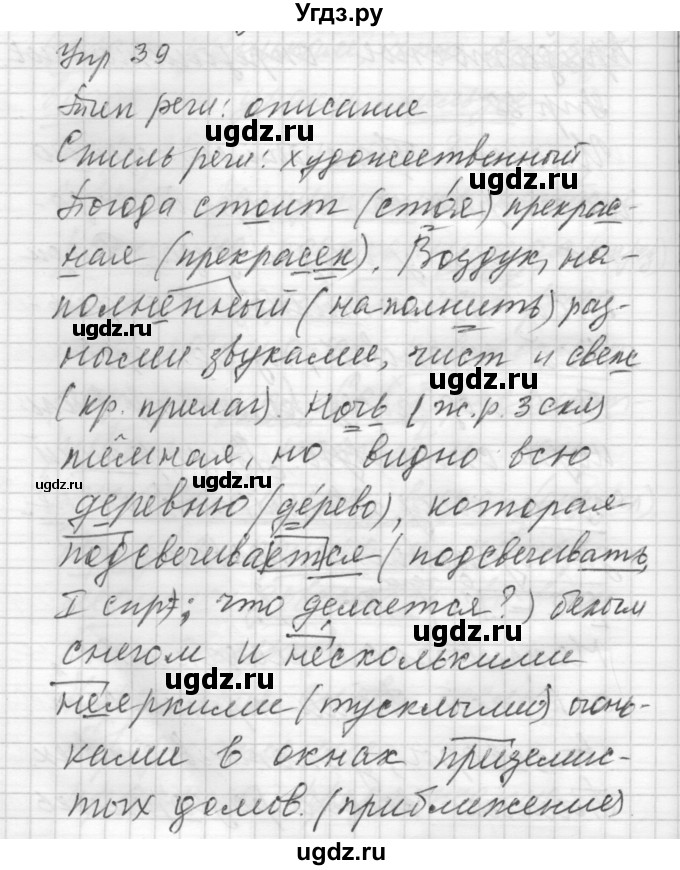 Угдз.ру
Упр 39
Тип речи: описание
ugdz.ru
Стиль речи: художественный
ugdz.ru
Погода стоит (сто́я) прекрас-
ная (прекрасен). Воздух, на-
полненный (наполнить) раз-
ugdz.ru
ными звуками, чист и свеж
ugdz.ru
(кр. прилаг). Ночь (ж.р. 3 скл)
тёмная, но видно всю
ugdz.ru
ugdz.ru
деревню (де́рево), которая
подсвечивается (подсвечивать,
I спр; что делается?) белым
ugdz.ru
снегом и несколькими
ugdz.ru
неяркими (тусклыми) огонь-
ками в окнах приземис-
тых домов. (приближение)
ugdz.ru